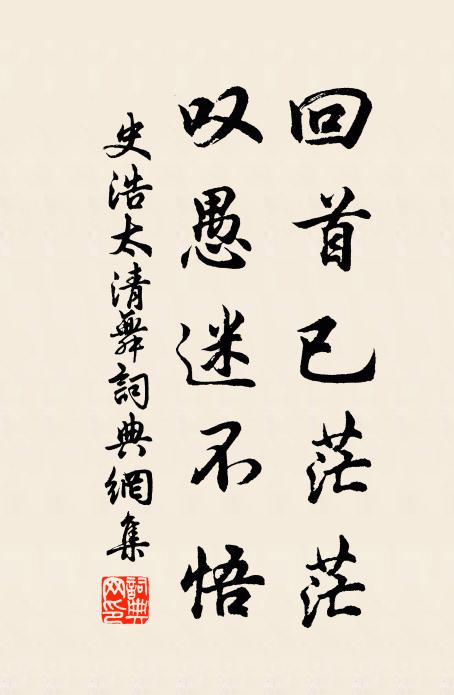 回首已茫茫
叹愚迷不悟
史浩太清舞詞典網集
詞典网印